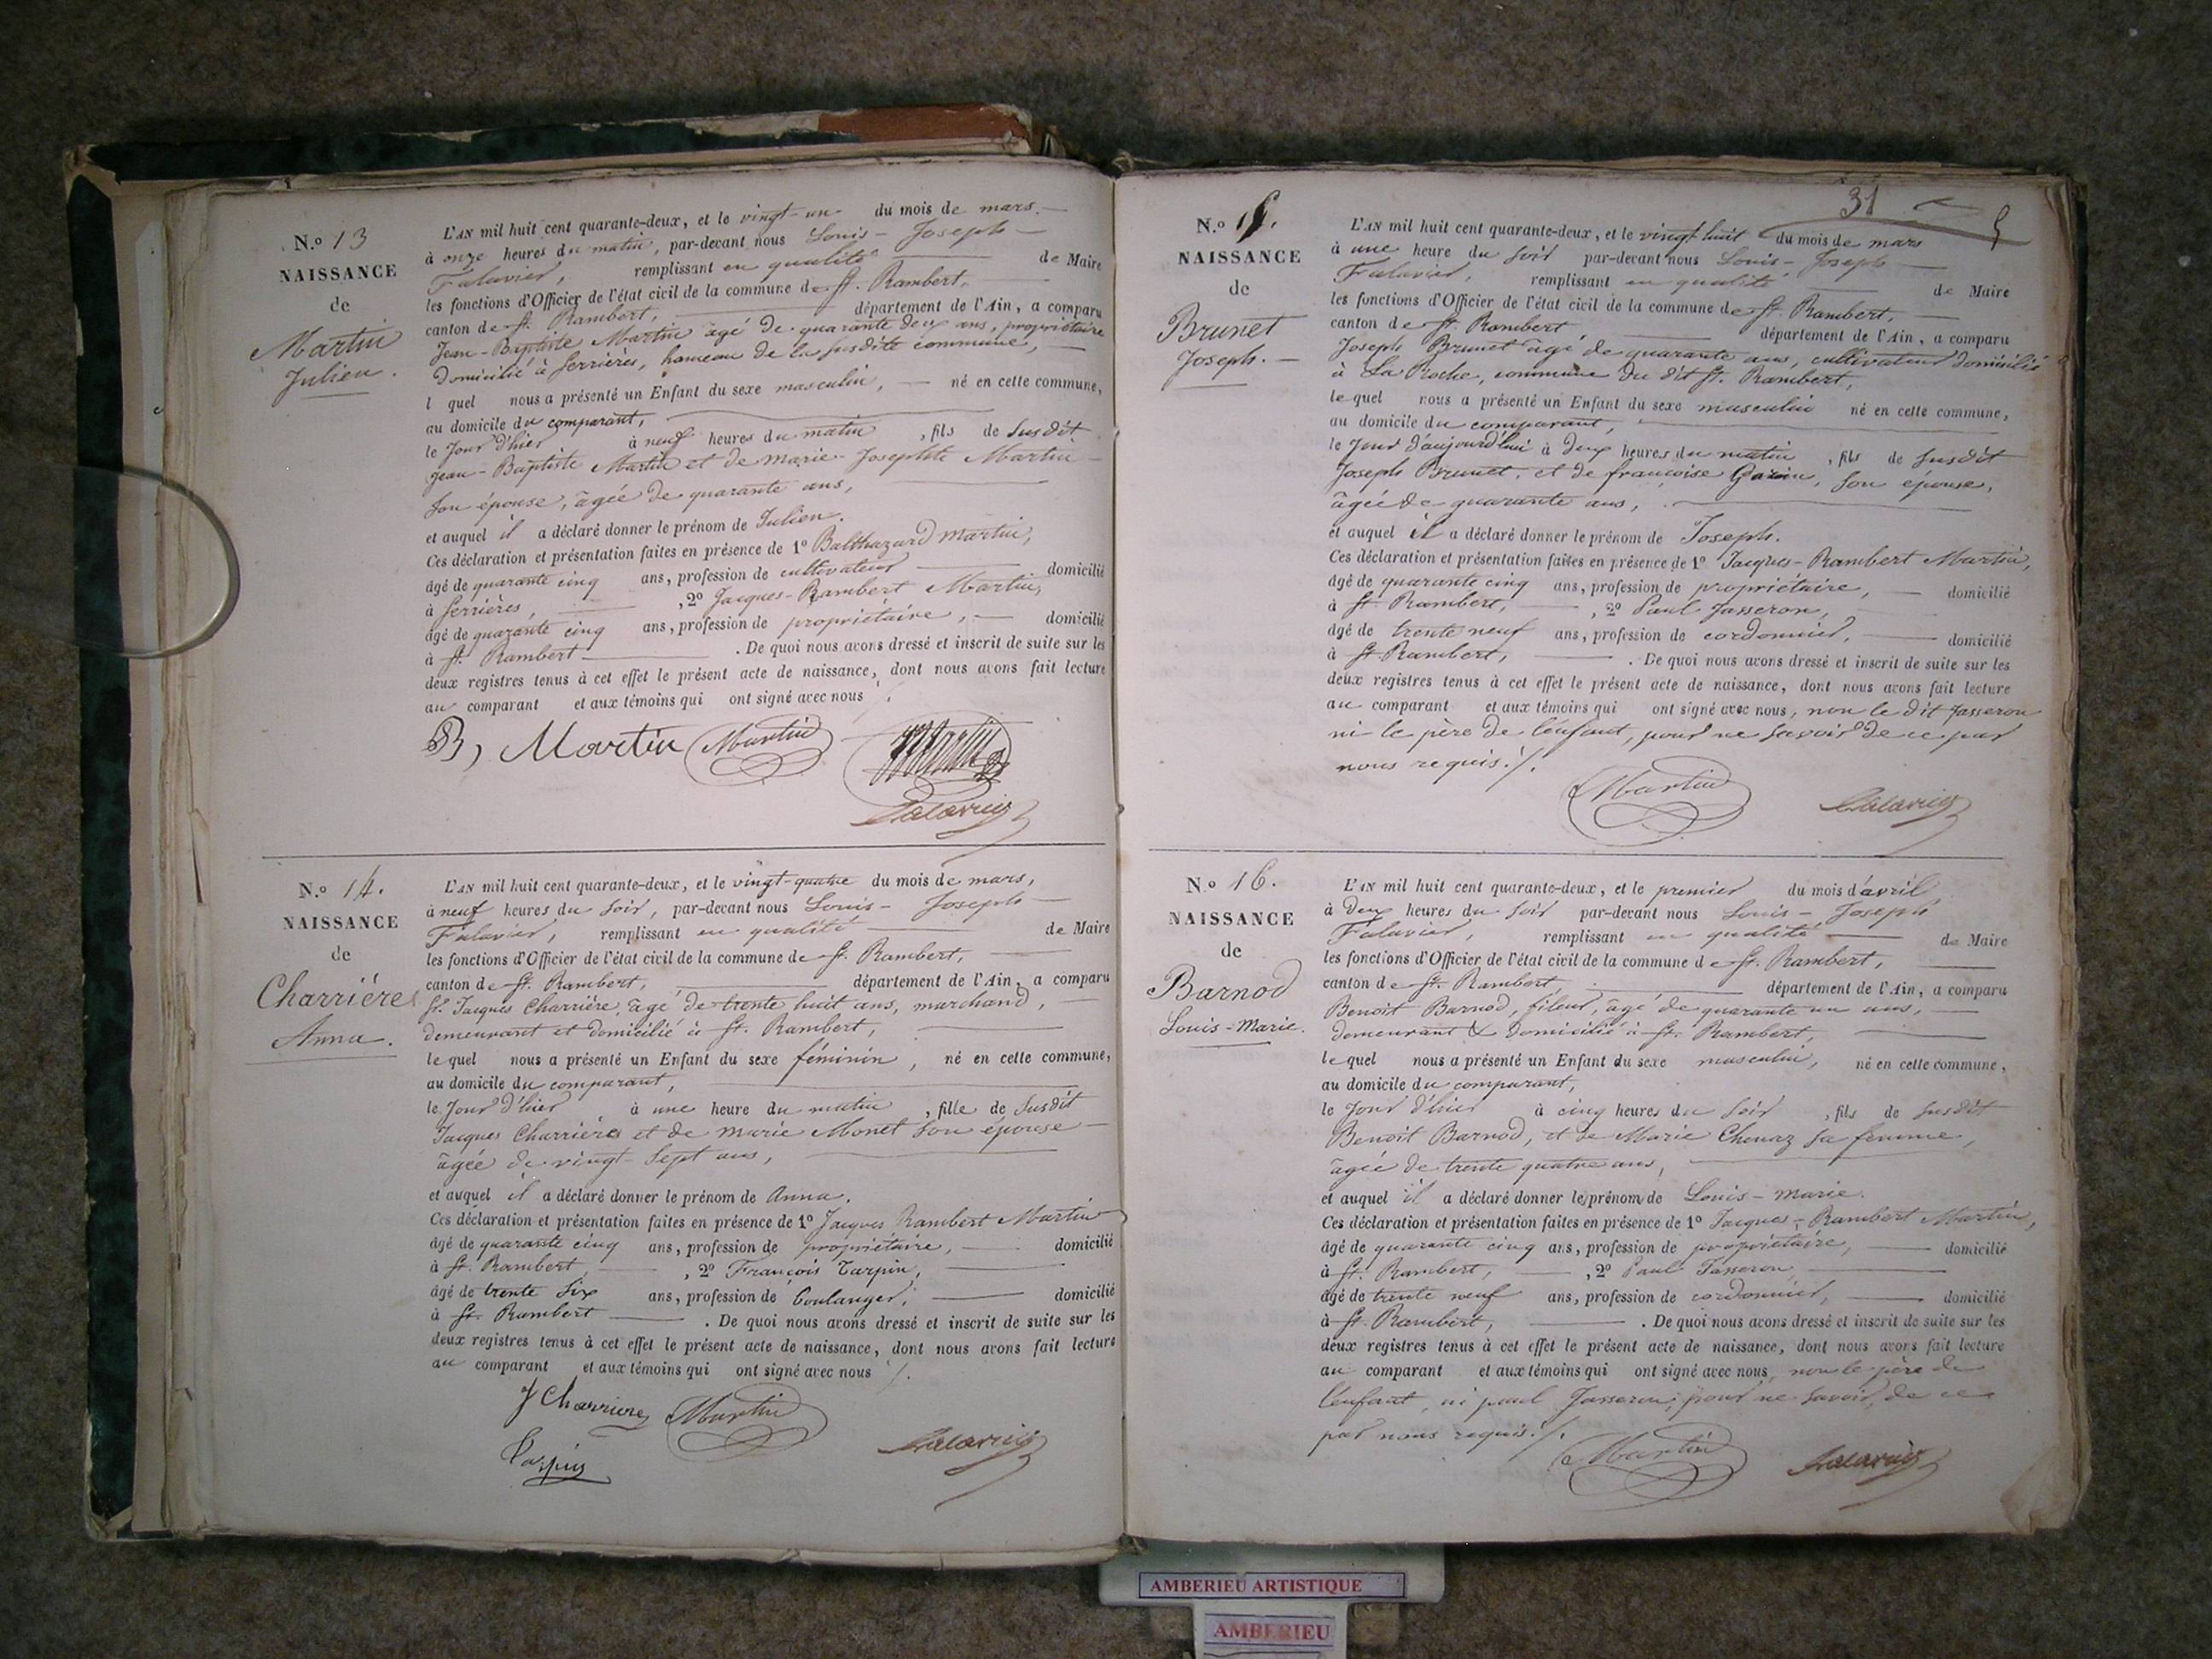 N.o 13
NAISSANCE
de
Martin
Julien.
L'AN mil huit cent quarante-deux, et le vingt-un du mois de mars.
à onze heures du matin, par-devant nous Louis-Joseph
Falavier, remplissant en qualité de Maire
les fonctions d'Officier de l'état civil de la commune de St. Rambert,
canton de St. Rambert, département de l'Ain, a comparu
Jean-Baptiste Martin âgé de quarante deux ans, propriétaire
domicilié à Serrières, hameau de la susdite commune,
l quel nous a présenté un Enfant du sexe masculin, né en cette commune,
au domicile du comparant,
le Jour d'hier à neuf heures du matin, fils de Susdit
Jean-Baptiste Martin et de Marie-Josephte Martin
son épouse, âgée de quarante ans,
et auquel il a déclaré donner le prénom de Julien.
Ces déclaration et présentation faites en présence de 1o Balthazard Martin,
âgé de quarante cinq ans, profession de cultivateur domicilié
à Serrières, , 2o Jacques-Rambert Martin,
âgé de quarante cinq ans, profession de propriétaire, domicilié
à St. Rambert . De quoi nous avons dressé et inscrit de suite sur les
deux registres tenus à cet effet le présent acte de naissance, dont nous avons fait lecture
au comparant et aux témoins qui ont signé avec nous ./.
B, Martin Martin
Falavier
N.o 14.
NAISSANCE
de
Charrière
Anna.
L'AN mil huit cent quarante-deux, et le vingt-quatre du mois de mars,
à neuf heures du soir, par-devant nous Louis-Joseph
Falavier, remplissant en qualité de Maire
les fonctions d'Officier de l'état civil de la commune de St. Rambert,
canton de St. Rambert, département de l'Ain, a comparu
Sr. Jacques Charrière, âgé de trente huit ans, marchand,
demeurant et domicilié à St. Rambert,
lequel nous a présenté un Enfant du sexe féminin, né en cette commune,
au domicile du comparant,
le Jour d'hier à une heure du matin, fille de Susdit
Jacques Charrière et de Marie Monet son épouse
âgée de vingt-sept ans,
et auquel il a déclaré donner le prénom de Anna.
Ces déclaration et présentation faites en présence de 1o Jacques Rambert Martin
âgé de quarante cinq ans, profession de propriétaire, domicilié
à St. Rambert, , 2o François Tarpin,
âgé de trente six ans, profession de boulanger, domicilié
à St. Rambert . De quoi nous avons dressé et inscrit de suite sur les
deux registres tenus à cet effet le présent acte de naissance, dont nous avons fait lecture
au comparant et aux témoins qui ont signé avec nous ./.
J Charrière Martin
Tarpin Falavier
31
N.o 15.
NAISSANCE
de
Brunet
Joseph.
L'AN mil huit cent quarante-deux, et le vingt huit du mois de mars
à une heure du soir par-devant nous Louis-Joseph
Falavier, remplissant en qualité de Maire
les fonctions d'Officier de l'état civil de la commune de St. Rambert,
canton de St. Rambert, département de l'Ain, a comparu
Joseph Brunet âgé de quarante ans, cultivateur domicilié
à La Roche, commune du dit St. Rambert,
lequel nous a présenté un Enfant du sexe masculin né en cette commune,
au domicile du comparant,
le Jour d'aujourd'hui à deux heures du matin, fils de susdit
Joseph Brunet, et de françoise Garin, son épouse,
âgée de quarante ans,
et auquel il a déclaré donner le prénom de Joseph.
Ces déclaration et présentation faites en présence de 1o Jacques-Rambert Martin,
âgé de quarante cinq ans, profession de propriétaire, domicilié
à St. Rambert, , 2o Paul Jasseron,
âgé de trente neuf ans, profession de cordonnier, domicilié
à St. Rambert, . De quoi nous avons dressé et inscrit de suite sur les
deux registres tenus à cet effet le présent acte de naissance, dont nous avons fait lecture
au comparant et aux témoins qui ont signé avec nous, non le dit Jasseron
ni le père de l'enfant, pour ne savoir de ce par
nous requis ./.
Martin Falavier
N.o 16.
NAISSANCE
de
Barnod
Louis-Marie.
L'AN mil huit cent quarante-deux, et le premier du mois d'avril
à deux heures du soir par-devant nous Louis-Joseph
Falavier, remplissant en qualité de Maire
les fonctions d'Officier de l'état civil de la commune de St. Rambert,
canton de St. Rambert, département de l'Ain, a comparu
Benoit Barnod, fileur, âgé de quarante un ans,
demeurant & domicilié à St. Rambert,
lequel nous a présenté un Enfant du sexe masculin, né en cette commune,
au domicile du comparant,
le Jour d'hier à cinq heures du soir, fils de susdit
Benoit Barnod, et de Marie Chenaz sa femme,
âgée de trente quatre ans,
et auquel il a déclaré donner le prénom de Louis-Marie.
Ces déclaration et présentation faites en présence de 1o Jacques-Rambert Martin,
âgé de quarante cinq ans, profession de propriétaire, domicilié
à St. Rambert, , 2o Paul Jasseron,
âgé de trente neuf ans, profession de cordonnier, domicilié
à St. Rambert, . De quoi nous avons dressé et inscrit de suite sur les
deux registres tenus à cet effet le présent acte de naissance, dont nous avons fait lecture
au comparant et aux témoins qui ont signé avec nous, non le père de
l'enfant, ni paul Jasseron, pour ne savoir, de ce
par nous requis ./.
Martin Falavier
AMBERIEU ARTISTIQUE
AMBERIEU